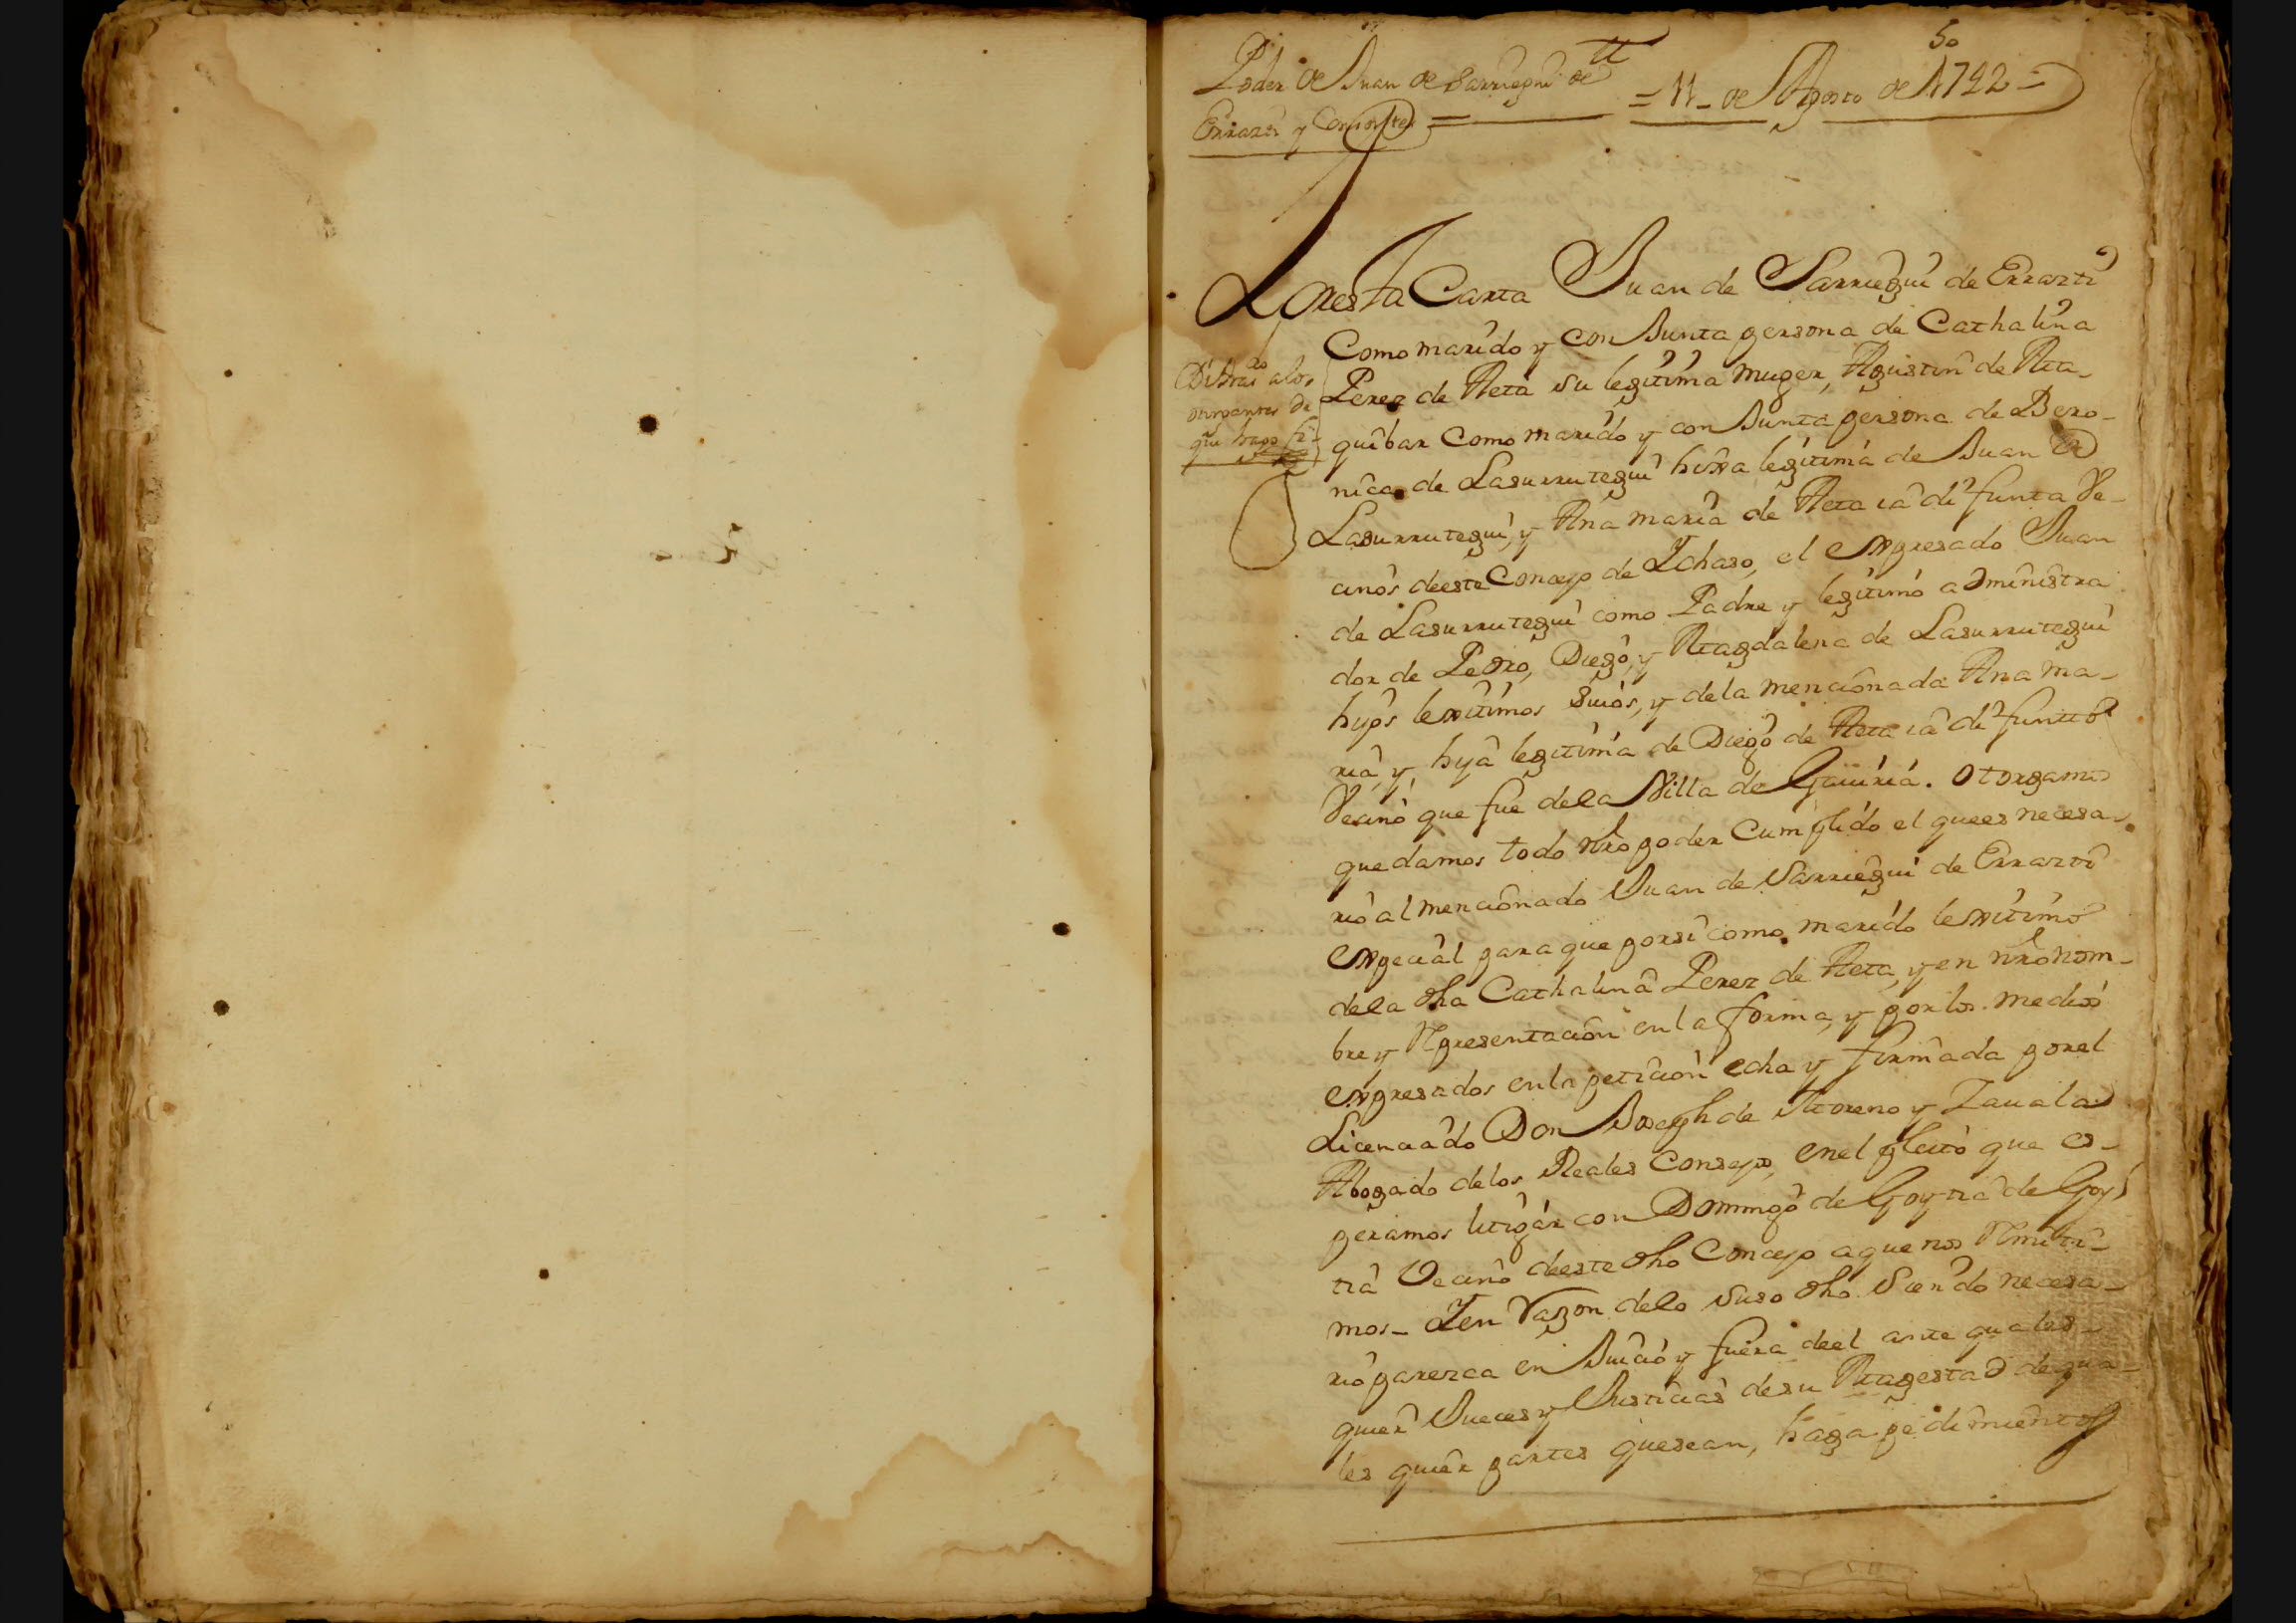 50
Poder de Juan de Sarriegui de
Errazti y Consortes = = 11 - de Agosto de 1742 =
Por esta Carta Juan de Sarriegui de Errazti
Como marido y con Junta persona de Cathalina
Perez de Aeta su legitima muger, Agustin de Ata-
quibar Como marido y con Junta persona de Bero-
nica de Lasurrutegui hixa legitima de Juan de
Lasurrutegui, y Ana maria de Aeta ia difunta Ve-
cinos deeste Concejo de Ichaso, el expresado Juan
de Lasurrutegui como Padre y legitimo administra
dor de Pedro, Diego, y Magdalena de Lasurrutegui
hijos lexitimos suios, y dela mencionada Ana ma-
ria, y hija legitima de Diego de Aeta ia difunto
Vecino que fue dela Villa de Gauiria. otorgamos
que damos todo nro poder Cumplido el quees necesa-
rio al mencionado Juan de Sarriegui de Errazti
expecial para que porsi como marido lexitimo
dela dha Cathalina Perez de Aeta, y en nro nom-
bre y Representacion en la forma, y por los medios
expresados enla peticion echa y firmada porel
Licenciado Don Joseph de Moreno y Zauala
Abogado delos Reales Consejos, enel pleito que es-
peramos litigar con Domingo de Goytia de Goy
tia Vecino deeste dho Concejo aque nos Remiti-
mos - Y en Razon delo suso dho siendo necesa-
rio parezca en Juicio y fuera deel ante quales-
quier Jueces y Justicias desu Magestad de qua-
les quier partes quesean, haga pedimientos
alos
otorgantes de
que hago fee